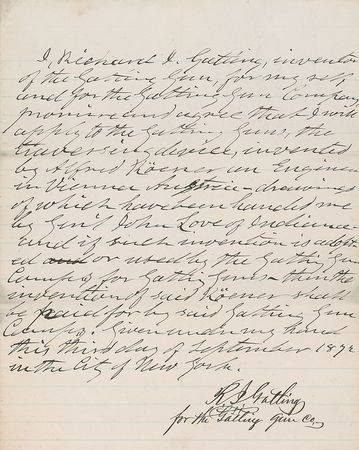 I, Richard J. Gatling, inventor
of the Gatling Gun, for my self
and for the Gatling Gun Company
promise and agree that I will
apply to the Gatling Guns, the
traversing device, invented
by Alfred Köener an Engineer
in Vienna Austria - drawings
of which have been handed me
by Gen'l John Love of Indiana -
and if such invention is adopt
ed and or used by the Gatling Gun
Compy for Gatling Guns - then the
invention of said Köener shall
be paid for by said Gatling Gun
Compy. Given under my hand
this third day of September 187
in the City of New York.
R. J. Gatling
for the Gatling Gun Co.